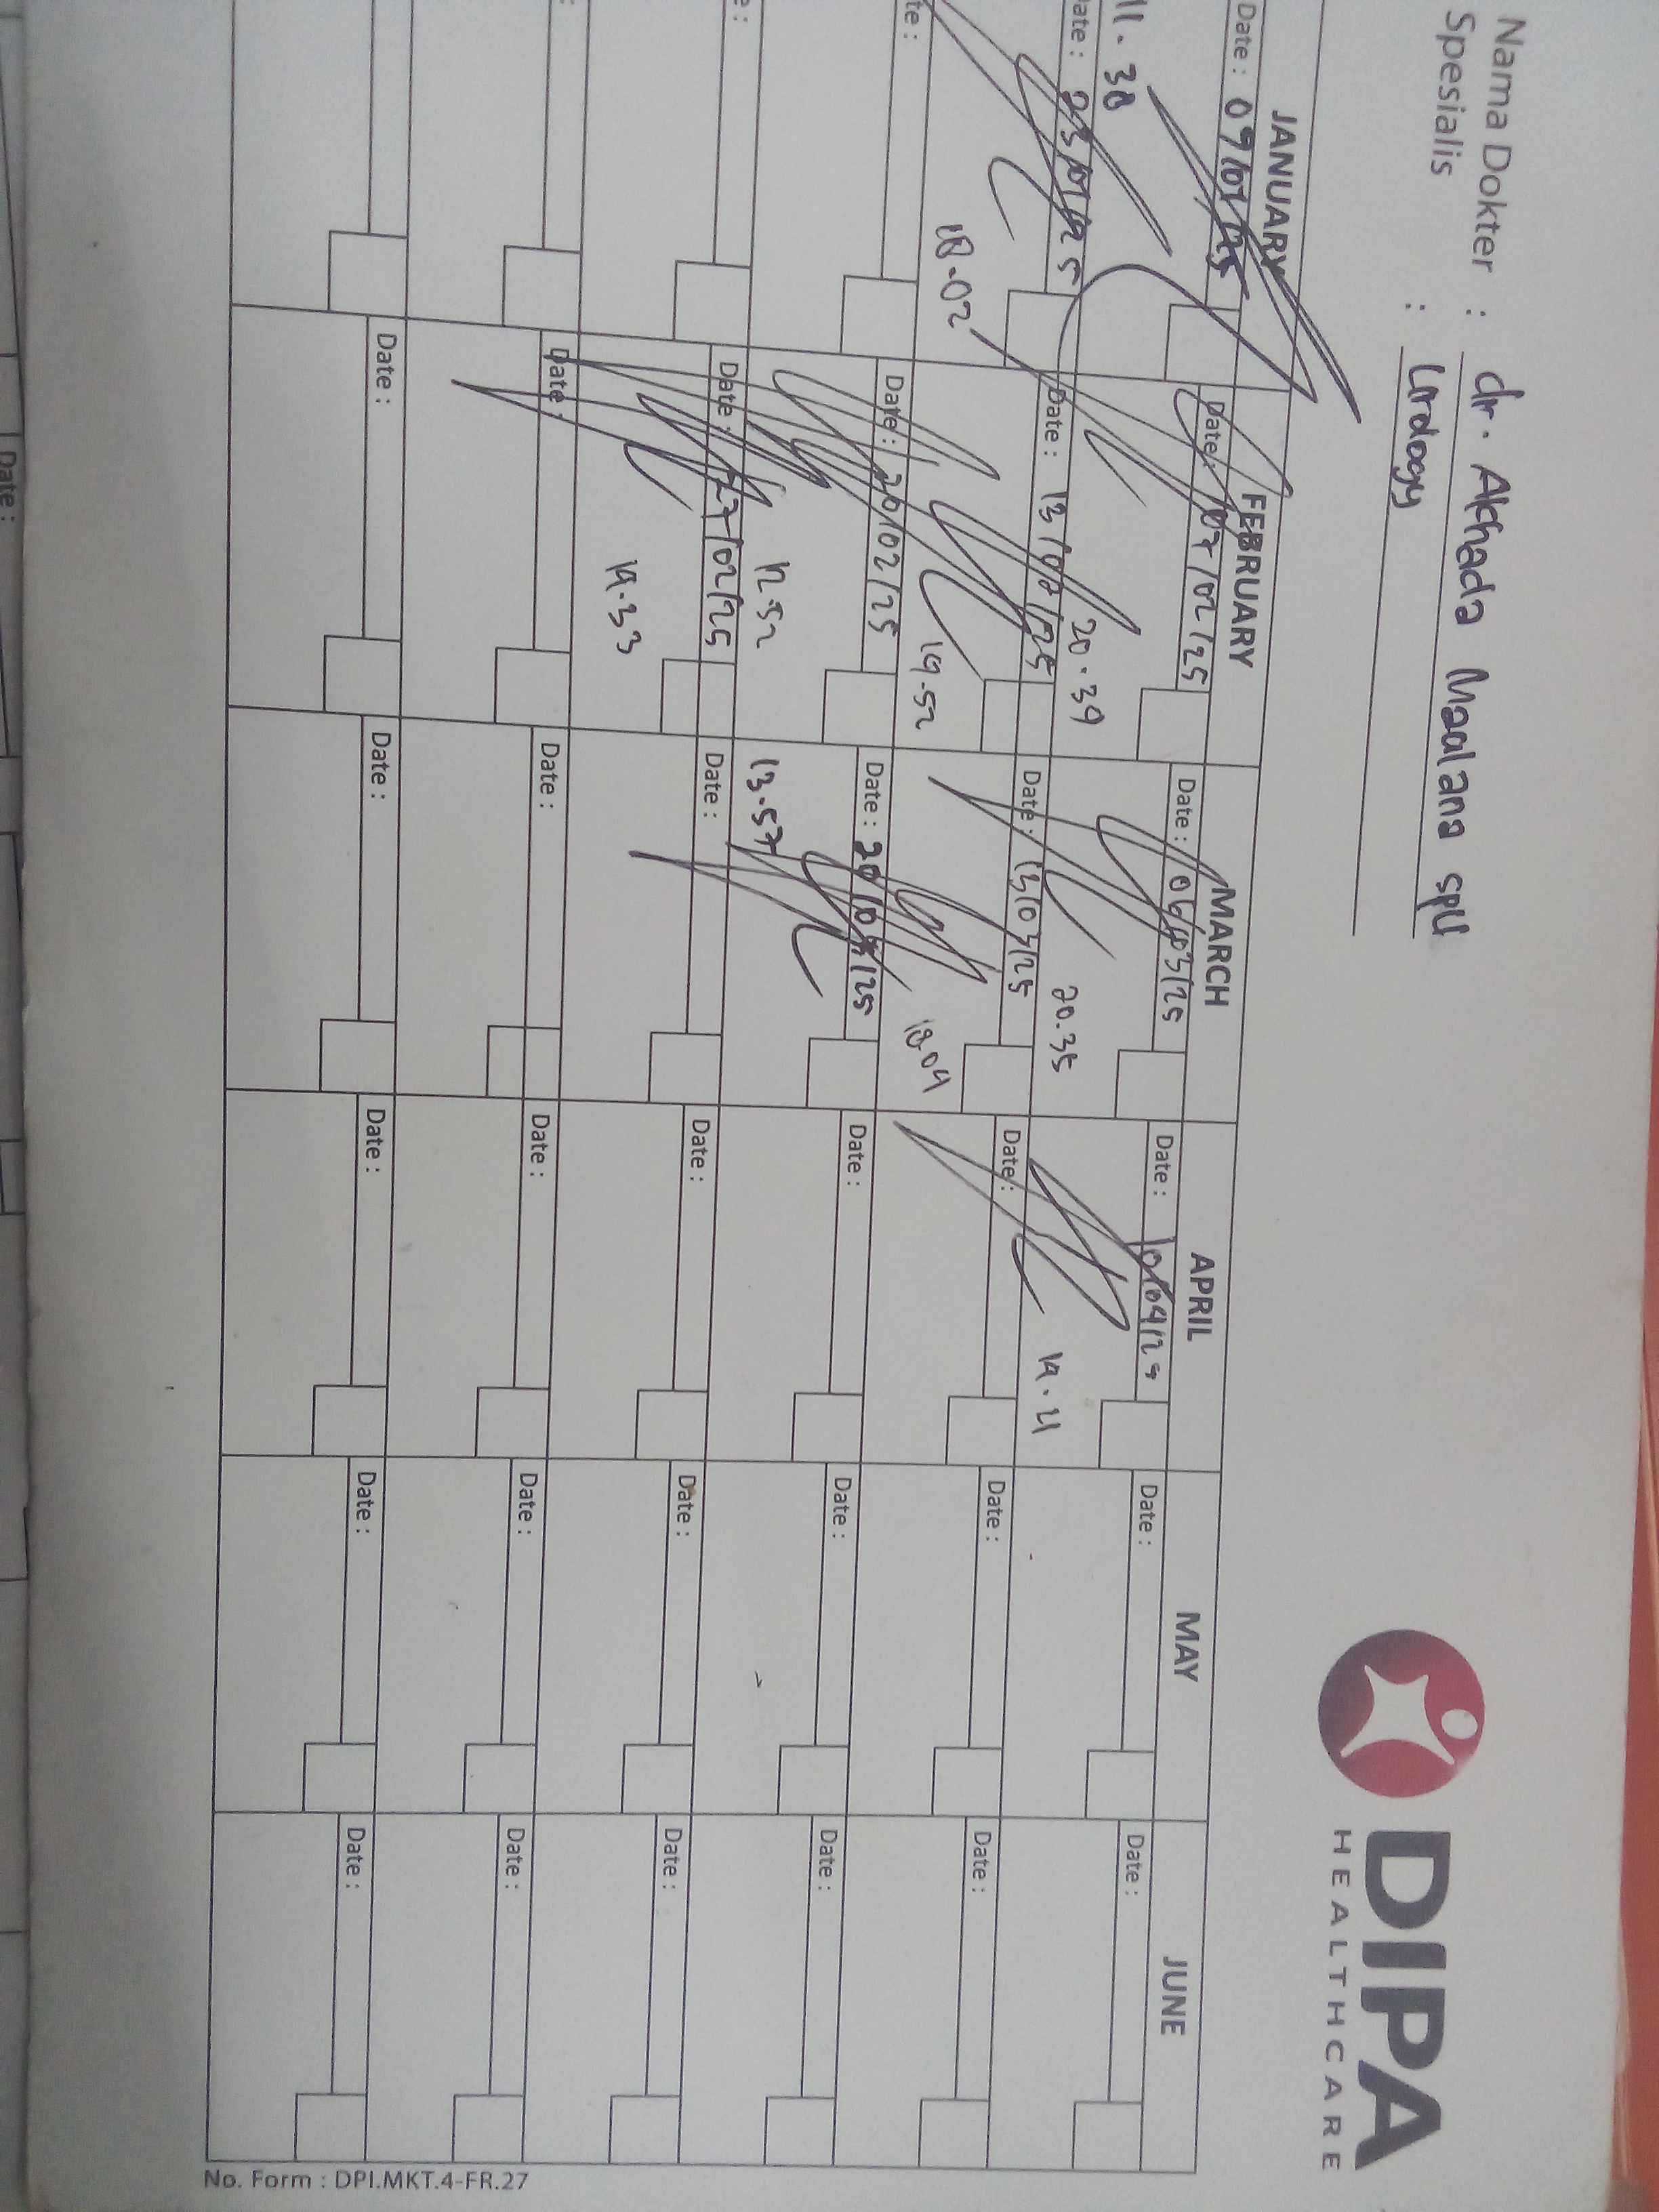 Nama Dokter : dr. Akhada Maulana SpU
Spesialis : Urology
DIPA
HEALTHCARE
JANUARY FEBRUARY MARCH APRIL MAY JUNE
Date : 09/01/25 Date : 07/02/25 Date : 06/03/25 Date : 10/04/25 Date : Date :
11.30 20.39 20.35 19.21
Date : 23/01/25 Date : 13/02/25 Date : 13/03/25 Date : Date : Date :
18.02 19.52 18.04
Date : 20/02/25 Date : 20/03/25 Date : Date : Date :
12.52 13.57
Date : 27/02/25 Date : Date : Date : Date :
19.33
Date : Date : Date : Date : Date :
Date : Date : Date : Date : Date :
No. Form : DPI.MKT.4-FR.27
Date :